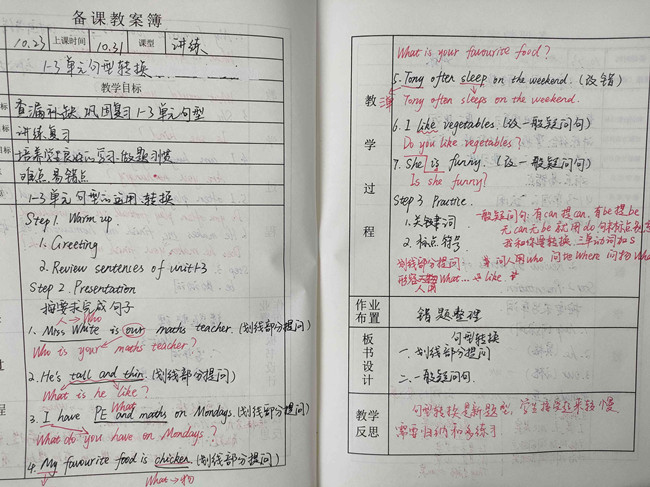 备课教案簿
10.23 上课时间 10.31 课型 讲练
1-3单元句型转换
教学目标
查漏补缺、巩固复习1-3单元句型
讲练复习
培养学生良好的学习、做题习惯
难点易错点
1-3单元句型的运用、转换
Step 1. Warm up.
1. Greeting
2. Review sentences of unit1-3
Step 2. Presentation
按要求完成句子
人→Who
1. Miss White is our maths teacher. (划线部分提问)
Who is your maths teacher?
2. He's tall and thin. (划线部分提问)
What is he like?
What
3. I have PE and maths on Mondays. (划线部分提问)
What do you have on Mondays?
4. My favourite food is chicken. (划线部分提问)
What→物
What is your favourite food?
5. Tony often sleep on the weekend. (改错)
Tony often sleeps on the weekend.
6. I like vegetables. (改一般疑问句)
Do you like vegetables?
7. She is funny. (改一般疑问句)
Is she funny?
Step 3 Practice.
1. 关键词
2. 标点符号
一般疑问句: 有can提can, 有be提be
无can无be就用do句末标点
我和你要转换 三单动词加s
划线部分提问 问人用Who 问地Where 问物What
What... like
教学过程
作业布置
错题整理
板书设计
句型转换
一.划线部分提问
二.一般疑问句.
教学反思
句型转换是新题型,学生接受起来较慢,
需要归纳和多练习.